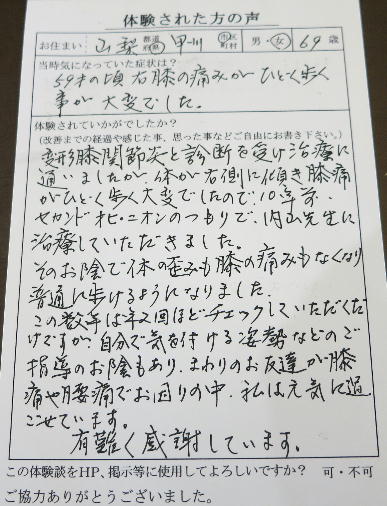 体験された方の声
お住まい 山梨 都道府県 甲州 市区町村 男・女 69 歳
当時気になっていた症状は？
59才の頃右膝の痛みがひどく歩く
事が大変でした。
体験されていかがでしたか？
(改善までの経過や感じた事、思った事などご自由にお書き下さい。)
変形膝関節炎と診断を受け治療に
通いましたが、体が右側に傾き膝痛
がひどく歩く大変でしたので、10年前、
セカンドオピニオンのつもりで、内山先生に
治療していただきました。
そのお陰で体の歪みも膝の痛みもなくなり
普通に歩けるようになりました。
この数年は年2回ほどチェックしていただくだ
けですが、自分で気を付ける姿勢などのご
指導のお陰もあり、まわりのお友達が膝
痛や腰痛でお困りの中、私は元気に過
ごせています。
有難く感謝しています。
この体験談をHP、掲示等に使用してよろしいですか？ 可・不可
ご協力ありがとうございました。